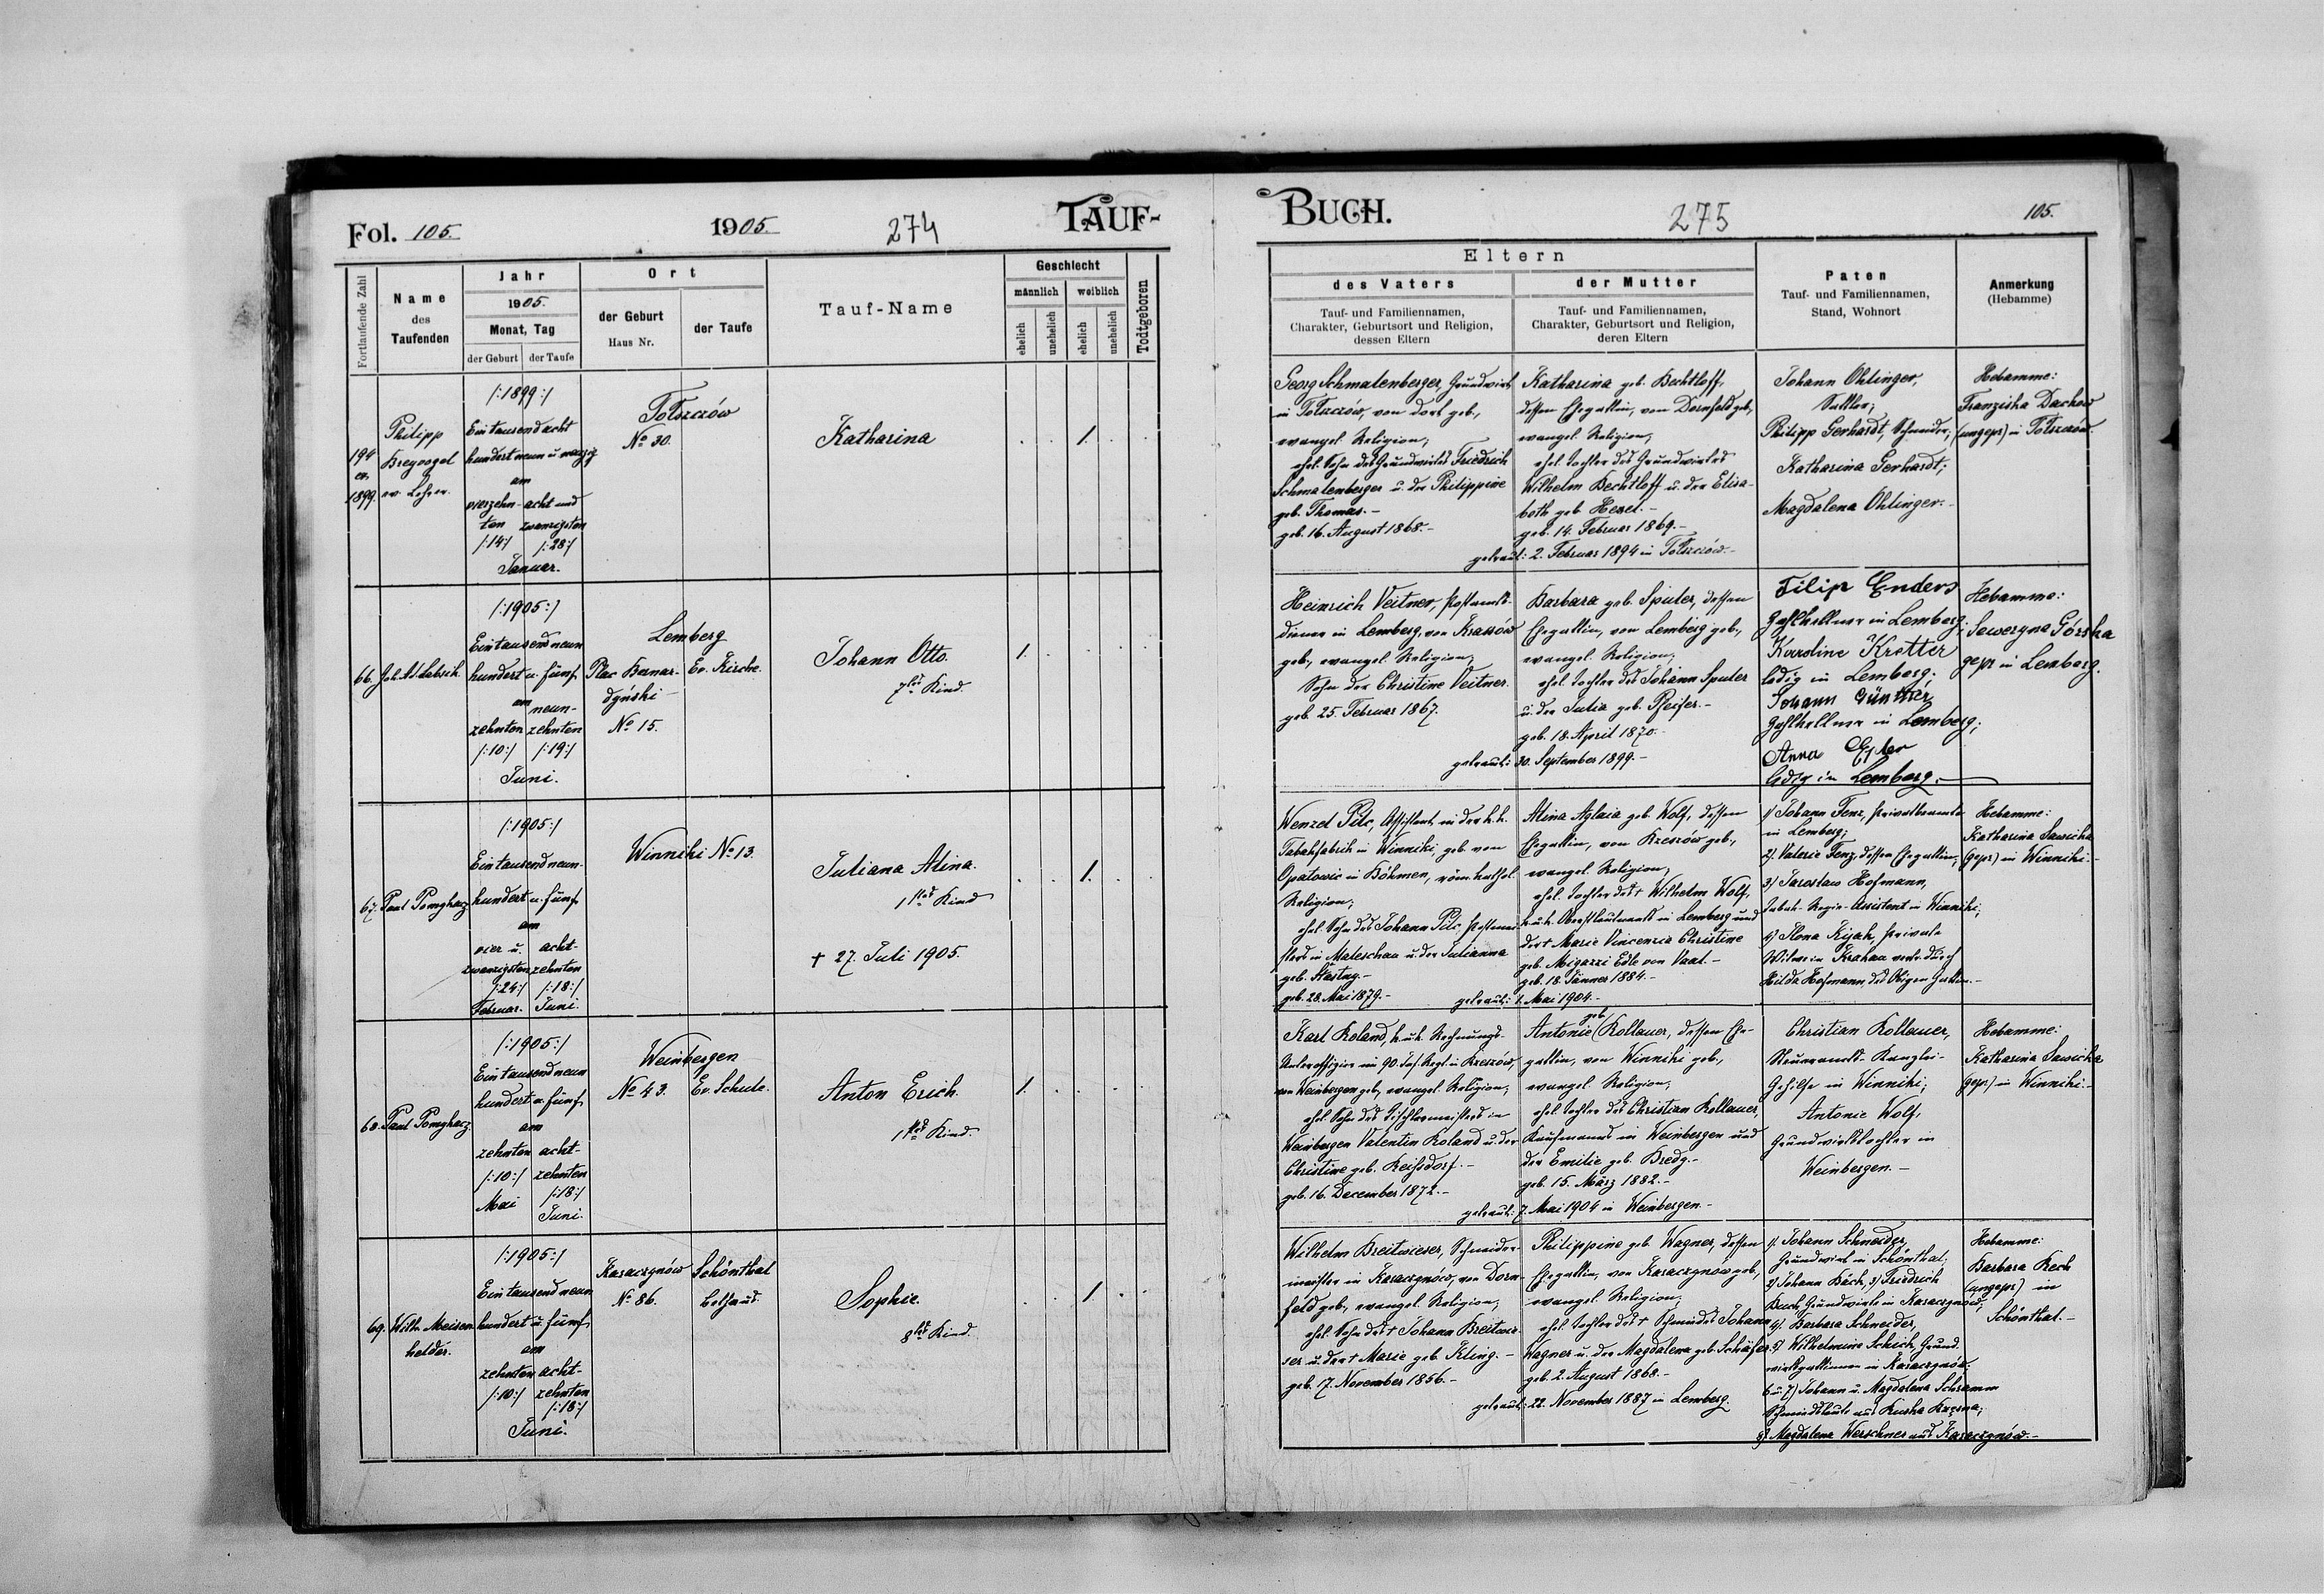 Fol. 105.
1905.
274
TAUF-
Fortlaufende Zahl
Name
des
Taufenden
Jahr
1905.
Monat, Tag
der Geburt
der Taufe
Ort
der Geburt
Haus Nr.
der Taufe
Tauf-Name
Geschlecht
männlich
weiblich
ehelich
unehelich
ehelich
unehelich
Todtgeboren
194
ex
1899.
Philipp
Breyvogel
ev. Lehrer.
/:1899:/
Eintausend acht
hundert neun u. neunzig
am
vierzehn- acht und
ten zwanzigsten
/:14:/ /:28:/
Januar.
Tołszczów
No 30.
Katharina
1.
66.
/:1905:/
Eintausend neun
hundert u. fünf
am neun-
zehnten zehnten
/:10:/ /:19:/
Juni.
Lemberg
Plac Bernar- Ev. Kirche.
dyński
No 15.
Johann Otto.
7tes Kind.
1.
67. Paul Pomykacz
/:1905:/
Eintausend neun-
hundert u. fünf
am
vier u. acht-
zwanzigsten zehnten
/:24:/ /:18:/
Februar. Juni.
Winniki No 13.
Juliana Alina.
1tes Kind
† 27. Juli 1905.
1.
68. Paul Pomykacz.
/:1905:/
Eintausend neun
hundert u. fünf
am
zehnten acht-
/:10:/ zehnten
Mai /:18:/
Juni.
Weinbergen
No 43. Ev. Schule.
Anton Erich.
1tes Kind.
1.
69. Wilh. Meisen
helder.
/:1905:/
Eintausend neun
hundert u. fünf
am
zehnten acht-
/:10:/ zehnten
/:18:/
Juni.
Kasaczynów Schönthal
No 86. Bethaus.
Sophie.
8tes Kind.
1.
BUCH.
275
105.
Eltern
des Vaters
Tauf- und Familiennamen,
Charakter, Geburtsort und Religion,
dessen Eltern
der Mutter
Tauf- und Familiennamen,
Charakter, Geburtsort und Religion,
deren Eltern
Paten
Tauf- und Familiennamen,
Stand, Wohnort
Anmerkung
(Hebamme)
Georg Schmalenberger, Grundwirt
in Tołszczów, von dort geb.,
evangel. Religion,
ehel. Sohn des Grundwirtes Friedrich
Schmalenberger u. der Philippine
geb. Thomas.-
geb. 16. August 1868.-
Katharina geb. Bechtloff,
dessen Ehegattin, von Dornfeld geb.,
evangel. Religion,
ehel. Tochter des Grundwirtes
Wilhelm Bechtloff u. der Elisa-
beth geb. Hexel.-
geb. 14. Februar 1869.-
getraut: 2. Februar 1894 in Tołszczów.-
Johann Ohlinger,
Sattler;
Philipp Gerhardt, Schneider;
Katharina Gerhardt;
Magdalena Ohlinger.-
Hebamme:
Franziska Dachow
(ungepr.) in Tołszczów.
Heinrich Veitner, Postamts-
diener in Lemberg, von Krassów
geb., evangel. Religion,
Sohn der Christine Veitner.
geb. 25. Februar 1867.
Barbara geb. Spuler, dessen
Ehegattin, von Lemberg geb.,
evangel. Religion,
ehel. Tochter des Johann Spuler
u. der Julia geb. Pfeifer.-
geb. 18. April 1870.-
getraut: 30. September 1899.-
Filip Enders
in Lemberg;
Karoline Kretter
ledig in Lemberg;
Johann Günther
in Lemberg;
Anna
ledig in Lemberg.
Hebamme:
Seweryna Górska
gepr. in Lemberg.
Wenzel Pilc, Assistent in der k.k.
Tabakfabrik in Winniki, geb. von
Opatowic in Böhmen, röm. kathol.
Religion;
ehel. Sohn des Johann Pilc, Postmei-
sters in Maleschau u. der Julianna
geb. Šťastny.-
geb. 28. Mai 1879.-
Alina Aglaia geb. Wolf, dessen
Ehegattin, von Rzeszów geb.,
evangel. Religion,
ehel. Tochter des † Wilhelm Wolf,
k.u.k. Oberstleutnants in Lemberg und
der † Marie Vincenzia Christine
geb. Migazzi Edle von Vaal.-
geb. 18. Jänner 1884.-
getraut: 1. Mai 1904.-
1) Johann Fenz, Privatbeamte
in Lemberg;
2) Valerie Fenz, dessen Ehegattin;
3) Jarosław Hofmann,
Tabak-Regie-Assistent in Winniki;
4) Ilona Kijak, Private
Witwe in Krakau vertr. durch
Hilda Hofmann, des Obigen Gattin.-
Hebamme:
Katharina Sawicka
(gepr.) in Winniki.-
Karl Roland, k.u.k. Rechnungs-
Unteroffizier im 90. Inf. Regt. in Rzeszów,
von Weinbergen geb., evangel. Religion,
ehel. Sohn des Tischlermeisters in
Weinbergen Valentin Roland u. der
Christine geb. Reißdorf.-
geb. 16. December 1872.-
Antonie geb. Kollauer, dessen Ehe-
gattin, von Winniki geb.,
evangel. Religion,
ehel. Tochter des Christian Kollauer,
Kaufmanns in Weinbergen und
der Emilie geb. Bredy.-
geb. 15. März 1882.-
getraut: 7. Mai 1904 in Weinbergen.-
Christian Kollauer,
Steueramts-Kanzlei-
Gehilfe in Winniki;
Antonie Wolf,
Grundwirtstochter in
Weinbergen.-
Hebamme:
Katharina Sawicka
(gepr.) in Winniki.-
Wilhelm Breitwieser, Schneider-
meister in Kasaczynów, von Dorn-
feld geb., evangel. Religion,
ehel. Sohn des † Johann Breitwie-
ser u. der † Marie geb. Kling.-
geb. 17. November 1856.-
Philippine geb. Wagner, dessen
Ehegattin, von Kasaczynów geb.,
evangel. Religion,
ehel. Tochter des † Schmiedes Johann
Wagner u. der Magdalena geb. Schäfer.
geb. 2. August 1868.-
getraut: 22. November 1887 in Lemberg.
1) Johann Schneider,
Grundwirt in Schönthal;
2) Johann Bäch, 3) Friedrich
Buch, Grundwirte in Kasaczynów;
4) Barbara Schneider,
5) Wilhelmine Schick, Grund-
wirtsgattinnen in Kasaczynów;
6 u. 7) Johann u. Magdalena Schramm
Schmiedsleute aus Ruska Krzesna;
8) Magdalena Werschner aus Kasaczynów.-
Hebamme:
Barbara Rech
(ungepr.) in
Schönthal.-